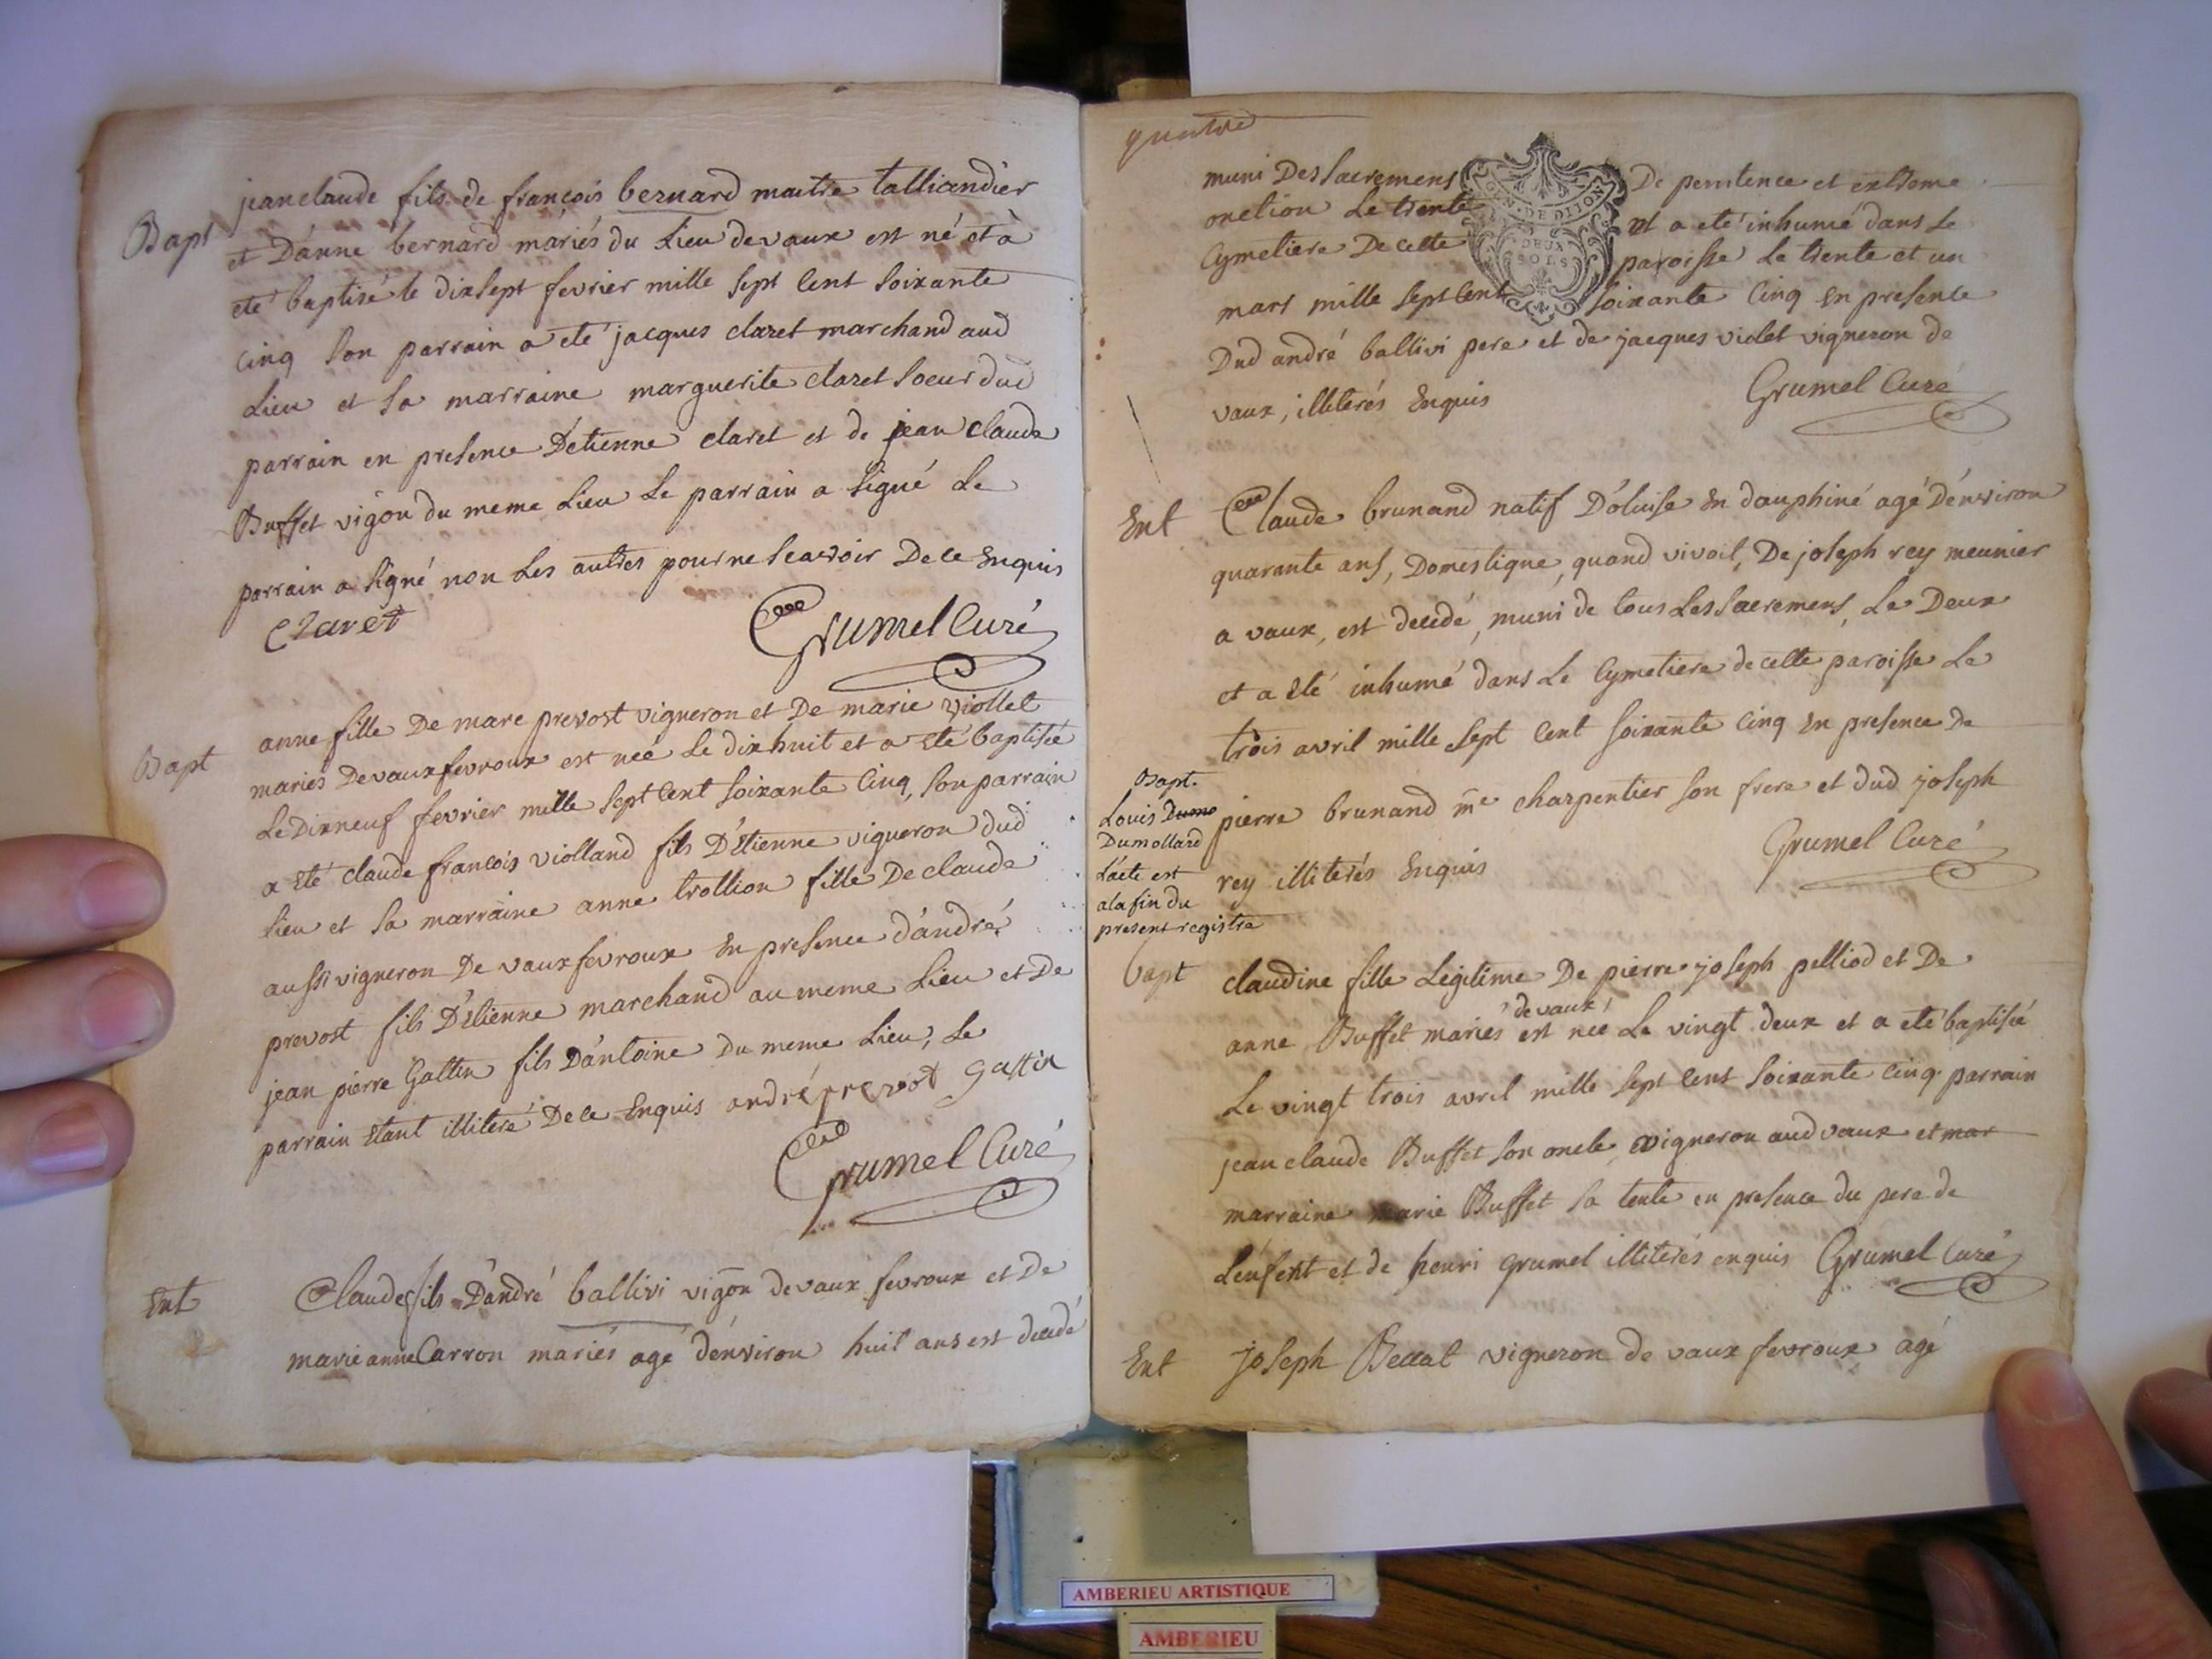 Bapt
jean claude fils de francois bernard maitre talliandier
et D'anne bernard mariés du Lieu devaux est né et à
eté baptisé le dix sept fevrier mille sept Cent soixante
cinq son parrain a eté jacques claret marchand aud
Lieu et sa marraine marguerite claret soeur dud
parrain en presence D'etienne claret et de jean claude
Buffet vigōn du meme Lieu Le parrain a signé Le
parrain a signé non Les autres pour ne scavoir De ce Enquis
Claret Grumel Curé
Bapt
anne fille De marc prevost vigneron et De marie viollet
mariés De vaux fevroux est née Le dix huit et a Eté baptisée
Le Dix neuf fevrier mille sept Cent soixante Cinq, son parrain
a Eté claude francois violland fils D'Etienne vigneron dud
Lieu et sa marraine anne trollion fille De claude
aussi vigneron De vaux fevroux En presence d'andré
prevost fils D'Etienne marchand au meme Lieu et De
jean pierre Gattin fils D'antoine Du meme Lieu, Le
parrain Etant illiteré De ce Enquis andré prevost gattin
Grumel Curé
Ent
Claude fils D'andré ballivi vigōn devaux fevroux et De
marie anne Carron mariés agé d'environ huit ans est decedé
quatre
muni Des sacremens De penitence et extreme
onction Le trente et a eté inhumé dans Le
Cymetiere De cette paroisse Le trente et un
mars mille sept Cent soixante Cinq En presence
Dud andré ballivi pere et de jacques violet vigneron de
vaux, illiterés Enquis Grumel Curé
GEN. DE DIJON
DEUX
SOLS
Ent
Claude brunand natif D'oluise En dauphiné agé D'environ
quarante ans, Domestique, quand vivoit, De joseph rey meunier
a vaux, est decedé, muni de tous Les sacremens, Le Deux
et a Eté inhumé dans Le Cymetiere de cette paroisse Le
trois avril mille sept Cent soixante Cinq En presence De
pierre brunand me charpentier son frere et dud joseph
rey illiterés Enquis Grumel Curé
Bapt.
Louis Dumo
Dumollard
L'acte est
a la fin du
present registre
bapt
claudine fille Legitime De pierre joseph pelliod et De
anne Buffet mariés devaux est née Le vingt deux et a eté baptisée
Le vingt trois avril mille sept Cent soixante cinq. parrain
jean claude Buffet son oncle, vigneron aud vaux et mar
marraine marie Buffet sa tente en presence du pere de
L'enfent et de henri grumel illiterés enquis Grumel Curé
Ent
joseph Beccat vigneron de vaux fevroux agé
AMBERIEU ARTISTIQUE
AMBERIEU